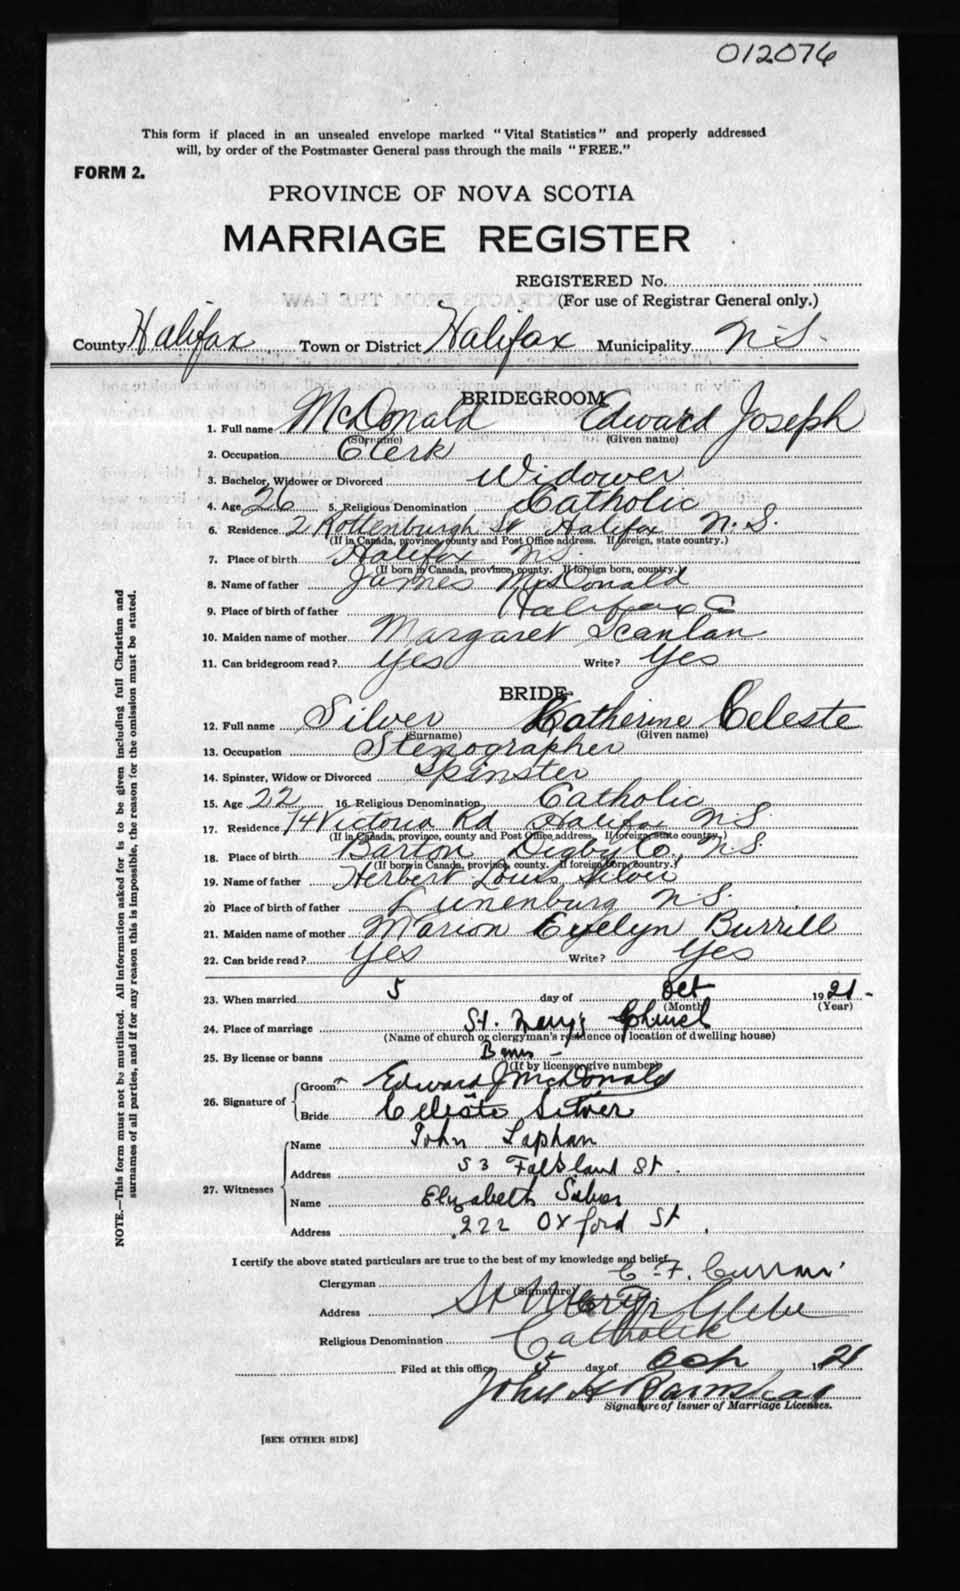 012076
This form if placed in an unsealed envelope marked "Vital Statistics" and properly addressed
will, by order of the Postmaster General pass through the mails "FREE."
FORM 2.
PROVINCE OF NOVA SCOTIA
MARRIAGE REGISTER
REGISTERED No.
(For use of Registrar General only.)
County Halifax Town or District Halifax Municipality N.S.
BRIDEGROOM
1. Full name McDonald Edward Joseph
(Surname) (Given name)
2. Occupation Clerk
3. Bachelor, Widower or Divorced Widower
4. Age 26 5. Religious Denomination Catholic
6. Residence 2 Rottenburgh St Halifax N.S.
(If in Canada, province, county and Post Office address. If foreign, state country.)
7. Place of birth Halifax N.S.
(If born in Canada, province, county. If foreign born, country.)
8. Name of father James McDonald
9. Place of birth of father Halifax C
10. Maiden name of mother Margaret Scanlan
11. Can bridegroom read? Yes Write? Yes
BRIDE
12. Full name Silver Katherine Celeste
(Surname) (Given name)
13. Occupation Stenographer
14. Spinster, Widow or Divorced Spinster
15. Age 22 16. Religious Denomination Catholic
17. Residence 74 Victoria Rd Halifax N.S.
(If in Canada, province, county and Post Office address, If foreign state country.)
18. Place of birth Barton Digby Co, N.S.
(If born in Canada, province, county. If foreign born, country.)
19. Name of father Herbert Louis Silver
20 Place of birth of father Lunenburg N.S.
21. Maiden name of mother Marion Evelyn Burrill
22. Can bride read? Yes Write? Yes
23. When married 5 day of Oct 1921-
(Month) (Year)
24. Place of marriage St. Mary's Church
(Name of church or clergyman's residence or location of dwelling house)
25. By license or banns Banns -
(If by license give number)
26. Signature of
Groom Edward J McDonald
Bride Celeste Silver
27. Witnesses
Name John Laphan
Address 53 Falkland St.
Name Elizabeth Silver
Address 222 Oxford St.
I certify the above stated particulars are true to the best of my knowledge and belief.
Clergyman C. F. Curran
(Signature)
Address St Mary's Glebe
Religious Denomination Catholic
Filed at this office 5 day of Oct 1921
John H
Signature of Issuer of Marriage Licenses.
[SEE OTHER SIDE]
NOTE.—This form must not be mutilated. All information asked for is to be given including full Christian and
surnames of all parties, and if for any reason this is impossible, the reason for the omission must be stated.